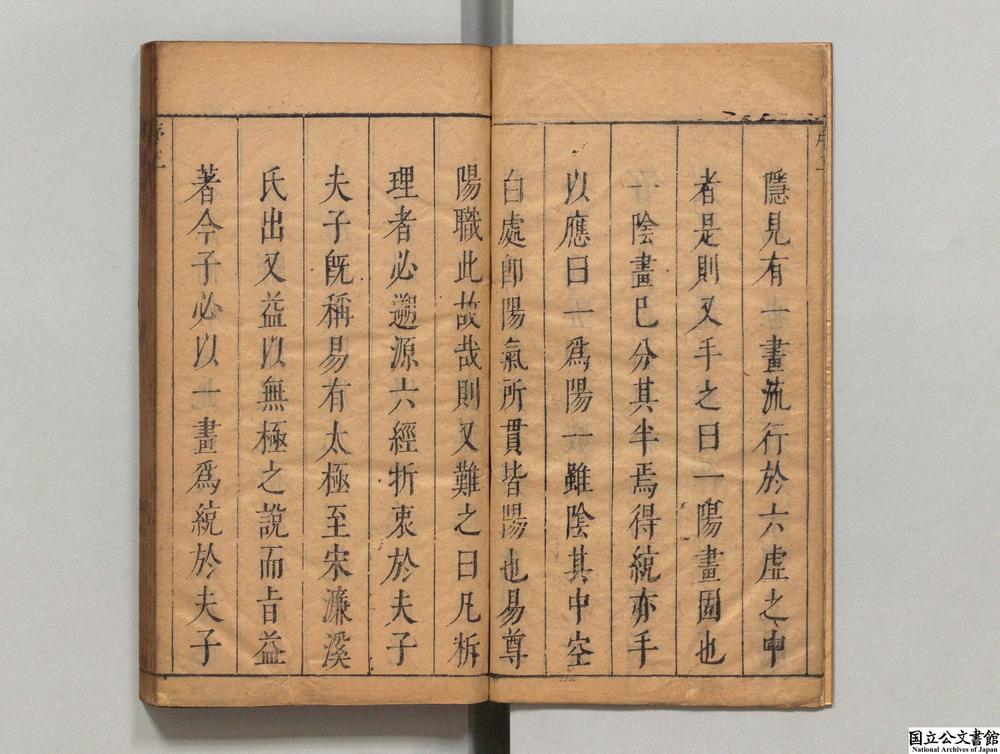 隱見有一畫流行於六虛之中
者是則又手之曰一陽畫固也
一陰畫已分其半焉得統亦手
以應曰一爲陽一雖陰其中空
白處卽陽氣所貫皆陽也易尊
陽職此故哉則又難之曰凡析
理者必遡源六經折衷於夫子
夫子旣稱易有太極至宋濂溪
氏出又益以無極之說而旨益
著今子必以一畫爲統於夫子
国立公文書館
National Archives of Japan